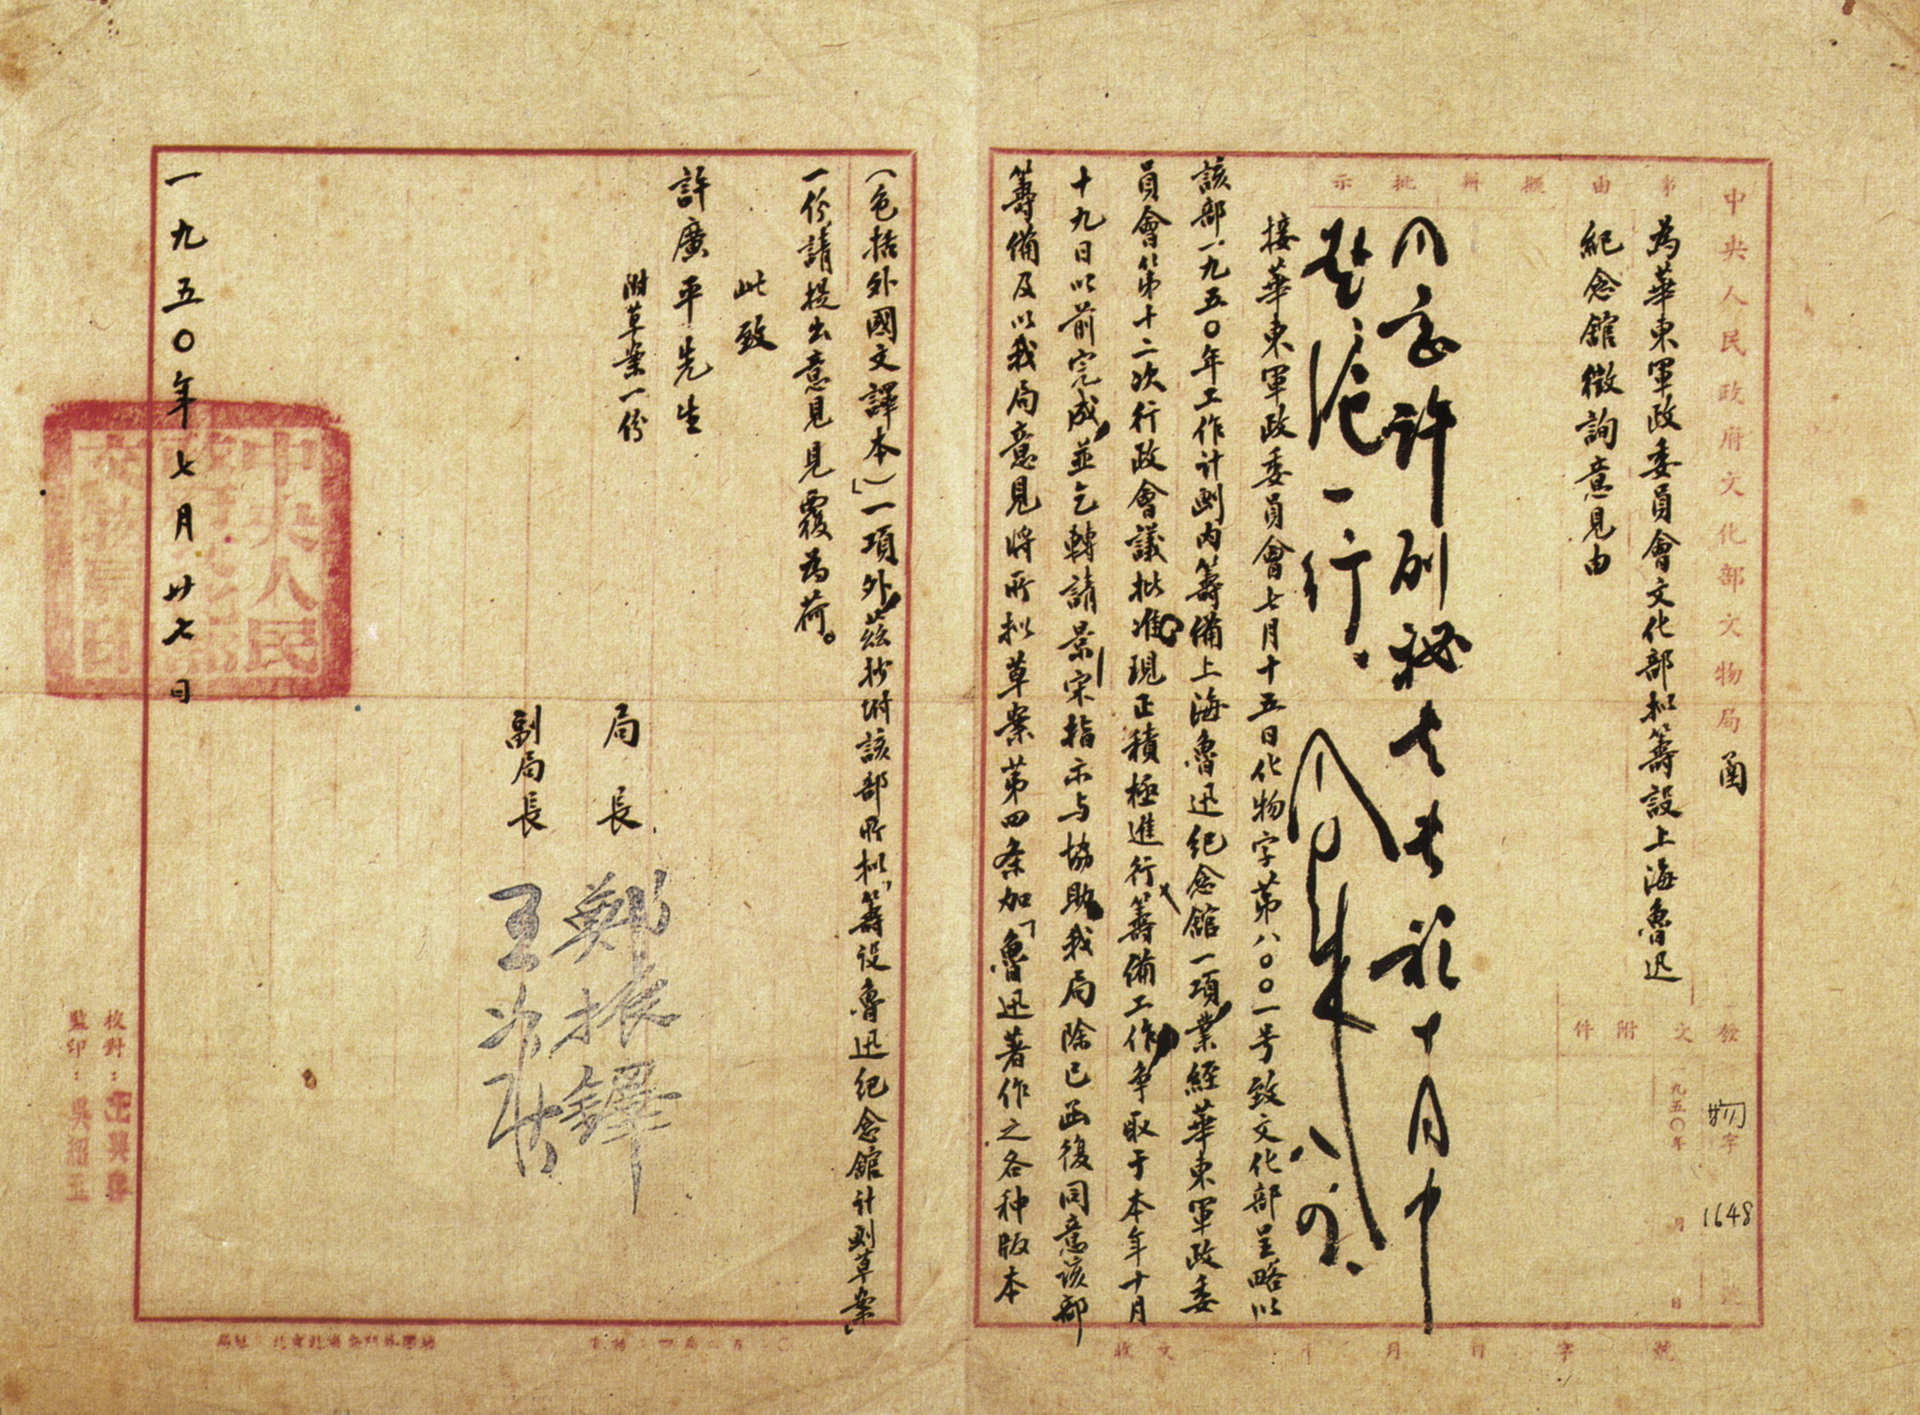 中央人民政府文化部文物局函
事由擬辦批示
為華東軍政委員會文化部拟籌設上海魯迅
紀念館徵詢意見由
發文附件
物字1648號
一九五〇年 月 日
同意許副祕書長於十月中
赴滬一行。
周恩来 八
接華東軍政委員會七月十五日化物字第八〇〇一号致文化部呈略以
該部一九五〇年工作计劃内籌備上海魯迅纪念館一項，業經華東軍政委
員會第十二次行政會議批准。現正積極進行籌備工作，争取于本年十月
十九日以前完成，並乞轉請景宋指示与協助，我局除已函復同意该部
籌備及以我局意見将所拟草案第四条加「魯迅著作之各种版本
（包括外國文譯本）」一項外，茲抄坿該部所拟「籌设魯迅纪念館计劃草案」
一份，請提出意見見覆為荷。
此致
許廣平先生
附草案一份
局長 鄭振鐸
副局長 王冶秋
一九五〇年七月廿七日
中央人民
政府文化部
文物局印
校對：
監印：吳
收文 字 號 月 日